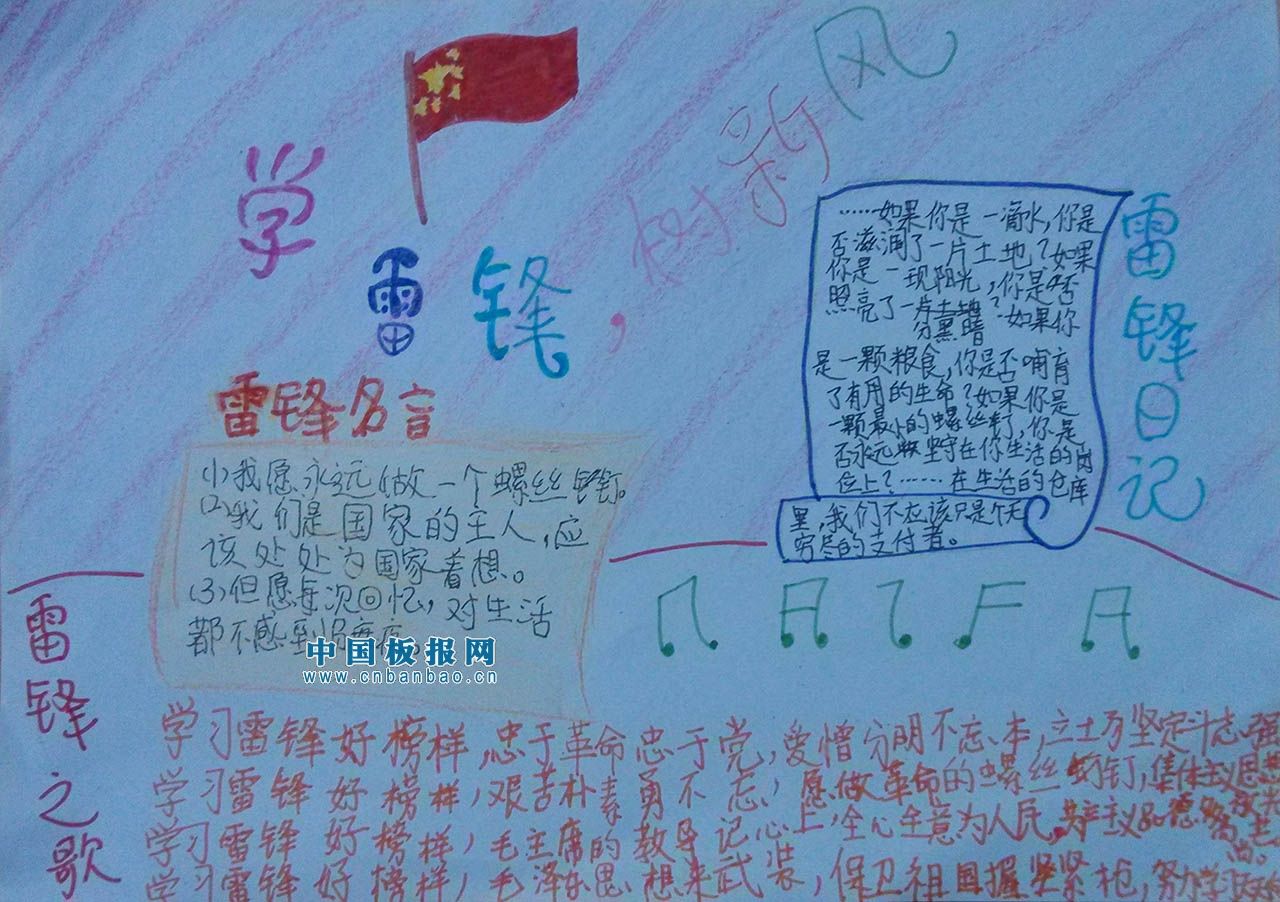 学雷锋,树新风
雷锋名言
(1)我愿永远做一个螺丝钉。
(2)我们是国家的主人,应
该处处为国家着想。
(3)但愿每次回忆,对生活
都不感到
中国板报网
www.cnbanbao.cn
雷锋日记
……如果你是一滴水,你是
否滋润了一片土地?如果
你是一现阳光,你是否
照亮了一片黑暗?如果你
分
是一颗粮食,你是否哺育
了有用的生命?如果你是
一颗最小的螺丝钉,你是
否永远坚守在你生活的岗
位上?……在生活的仓库
里,我们不应该只是个无
穷尽的支付者。
雷锋之歌
学习雷锋好榜样,忠于革命忠于党,爱憎分明不忘本,立士万坚定斗志强
学习雷锋好榜样,艰苦朴素勇不忘,愿做革命的螺丝钉,集体主义思想放光芒。
学习雷锋好榜样,毛主席的教导记心上,全心生意为人民,共产主义品德多高尚。
学习雷锋好榜样,毛泽东思想来武装,保卫祖国握坚紧枪,努力学习